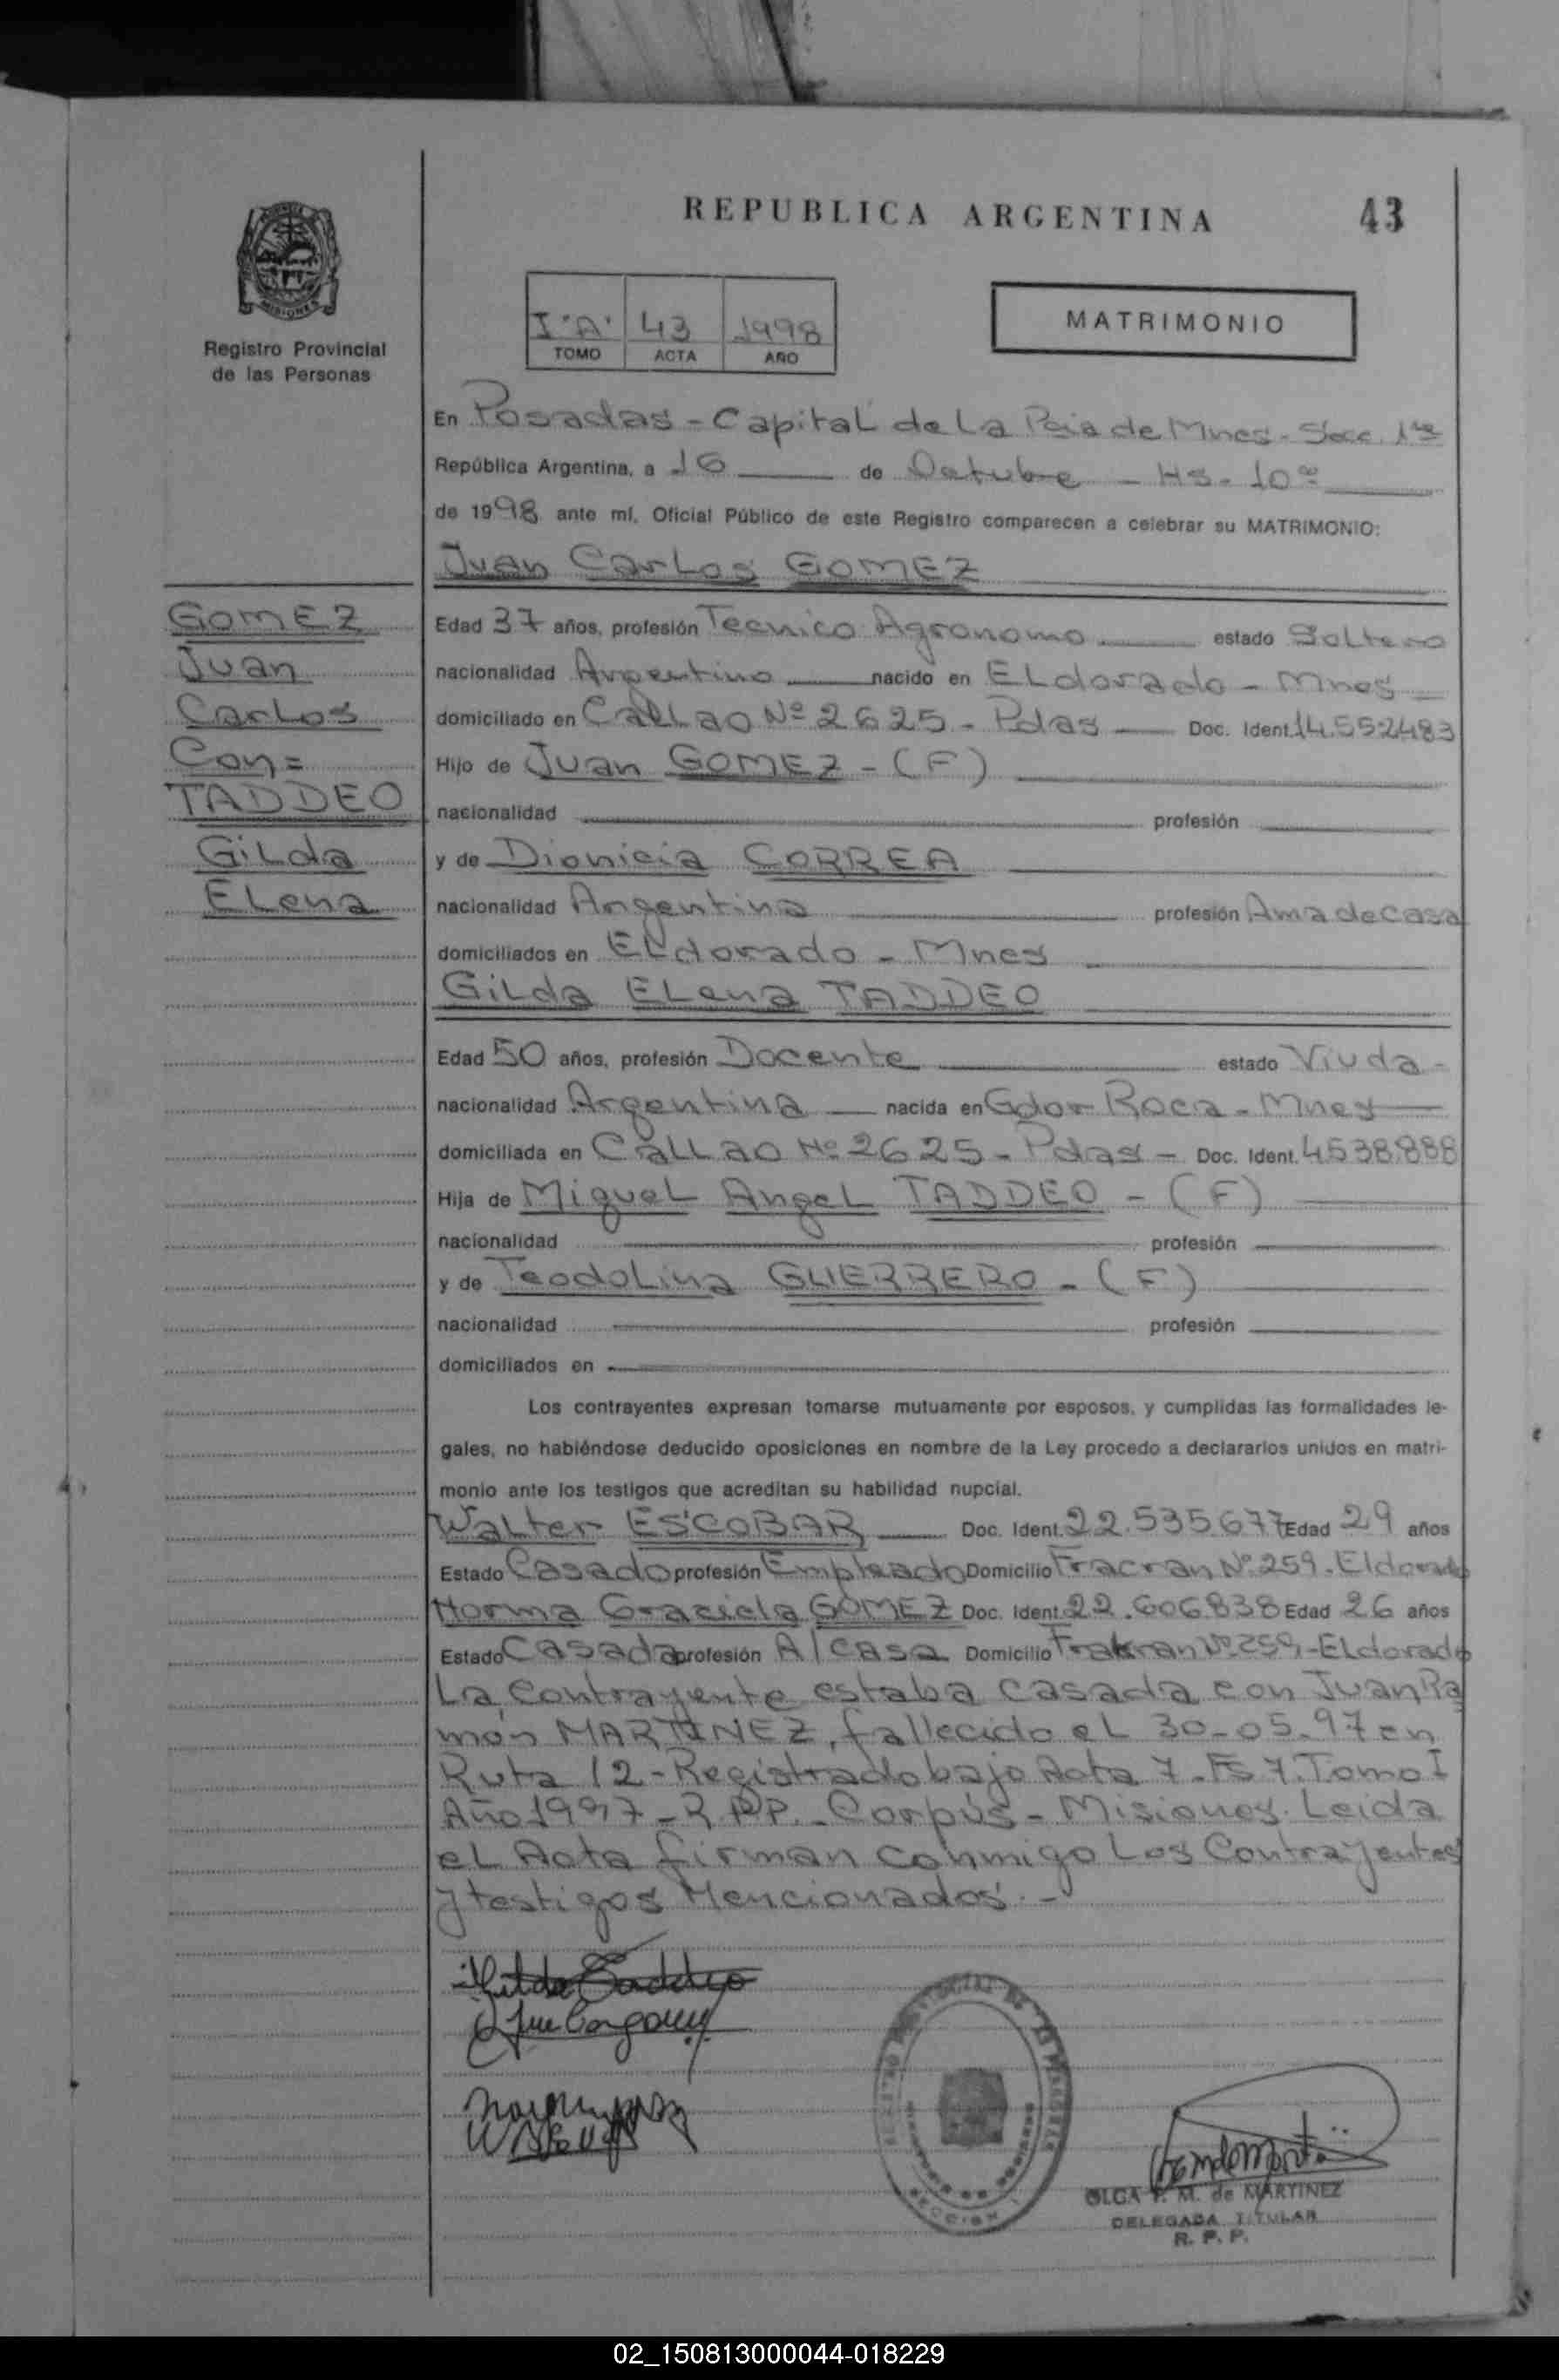 REPUBLICA ARGENTINA
43
MISIONES
Registro Provincial
de las Personas
I "A" 43 1998
TOMO ACTA AÑO
MATRIMONIO
En Posadas - Capital de La Pcia de Mnes - Secc. 1ra
República Argentina, a 16 de Octubre - Hs. 10
de 1998 ante mí, Oficial Público de este Registro comparecen a celebrar su MATRIMONIO:
Juan Carlos GOMEZ
GOMEZ
Juan
Carlos
Con =
TADDEO
Gilda
Elena
Edad 37 años, profesión Tecnico Agronomo estado Soltero
nacionalidad Argentino nacido en Eldorado - Mnes
domiciliado en Callao Nº 2625 - Pdas Doc. Ident. 14.552483
Hijo de Juan GOMEZ - (F)
nacionalidad profesión
y de Dionicia CORREA
nacionalidad Argentina profesión Ama de casa
domiciliados en Eldorado - Mnes
Gilda Elena TADDEO
Edad 50 años, profesión Docente estado Viuda -
nacionalidad Argentina nacida en Gdor Roca - Mnes
domiciliada en Callao Nº 2625 - Pdas - Doc. Ident. 4538.888
Hija de Miguel Angel TADDEO - (F)
nacionalidad profesión
y de Teodolina GUERRERO - (F)
nacionalidad profesión
domiciliados en
Los contrayentes expresan tomarse mutuamente por esposos, y cumplidas las formalidades le-
gales, no habiéndose deducido oposiciones en nombre de la Ley procedo a declararlos unidos en matri-
monio ante los testigos que acreditan su habilidad nupcial.
Walter ESCOBAR Doc. Ident. 22.535677 Edad 29 años
Estado Casado profesión Empleado Domicilio Fracran Nº 259 - Eldorado
Norma Graciela GOMEZ Doc. Ident. 22.606838 Edad 26 años
Estado Casada profesión A/casa Domicilio Frakran Nº 259 - Eldorado
La contrayente estaba casada con Juan Ra
món MARTINEZ, fallecido el 30-05-97 en
Ruta 12 - Registrado bajo Acta 7 - Fs 7. Tomo I
Año 1997 - R.P.P. - Corpús - Misiones. Leida
el Acta firman conmigo Los Contrayentes
y testigos Mencionados. -
Gilda Taddeo
OLGA F. M. de MARTINEZ
DELEGADA TITULAR
R. P. P.
02_150813000044-018229